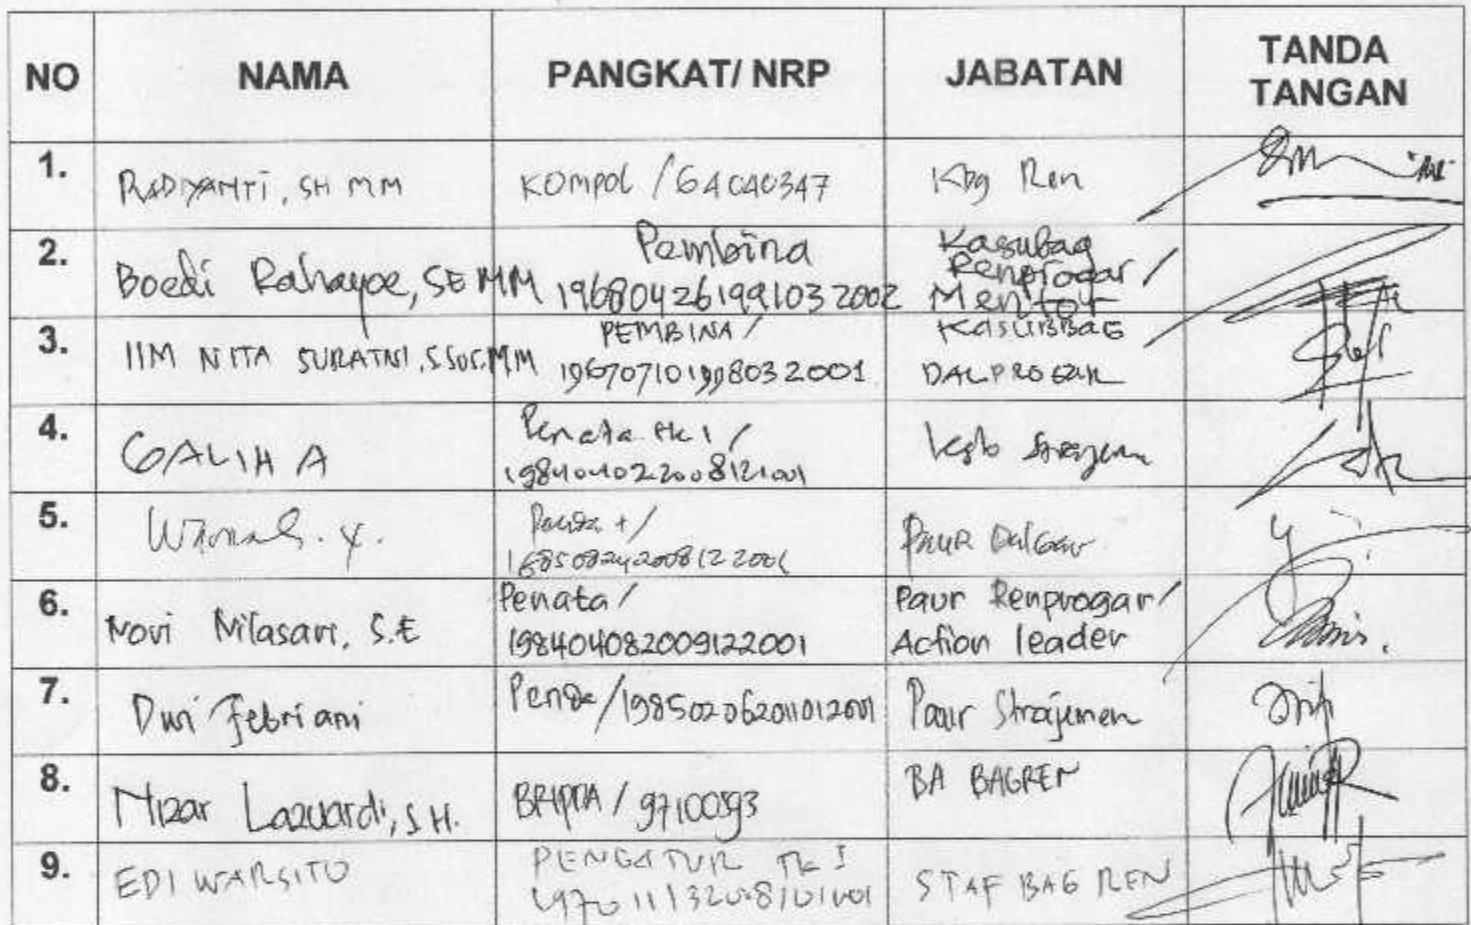 NO NAMA PANGKAT/ NRP JABATAN TANDA TANGAN
1. RADIYANTI, SH MM KOMPOL / Kbg Ren
2. Boedi Rahayoe, SE MM Pembina 196804261991032002 Kasubag Renprogar / Mentor
3. IIM NITA SURATNI, S.Sos, MM PEMBINA / 196707101998032001 KASUBBAG DALPROGAR
4. GALIH A Penata Tk 1 / 198404022008121001 Ksb Strajemen
5. Paur Dalgar
6. Novi Nilasari, S.E Penata / 198404082009122001 Paur Renprogar / Action leader
7. Dwi Febriani Penda / 198502062011012001 Paur Strajemen
8. Nizar Lazuardi, S H. BRIPDA / 97100593 BA BAGREN
9. EDI WARSITO PENGATUR TK I STAF BAG REN